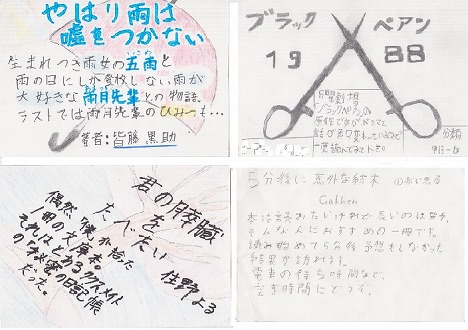 やはり雨は
嘘をつかない
生まれつき雨女の五雨と
雨の日にしか登校しない雨が
大好きな雨月先輩との物語。
ラストでは雨月先輩のひみつも…
著者:皆藤黒助
ブラック
ペアン
19
88
君の膵臓
をたべたい
住野よる
偶然、「僕」が拾った
1冊の文庫本。
それはあるクラスメイト
の「秘密の日記帳」
だった。
5分後に意外な結末
①赤い悪夢
Gakken
本は読みたいけれど長いのはな…
そんな人におすすめの一冊です。
読み始めて5分後予想もしなかった
結果が訪れます。
電車の待ち時間など、
空き時間にどうぞ。